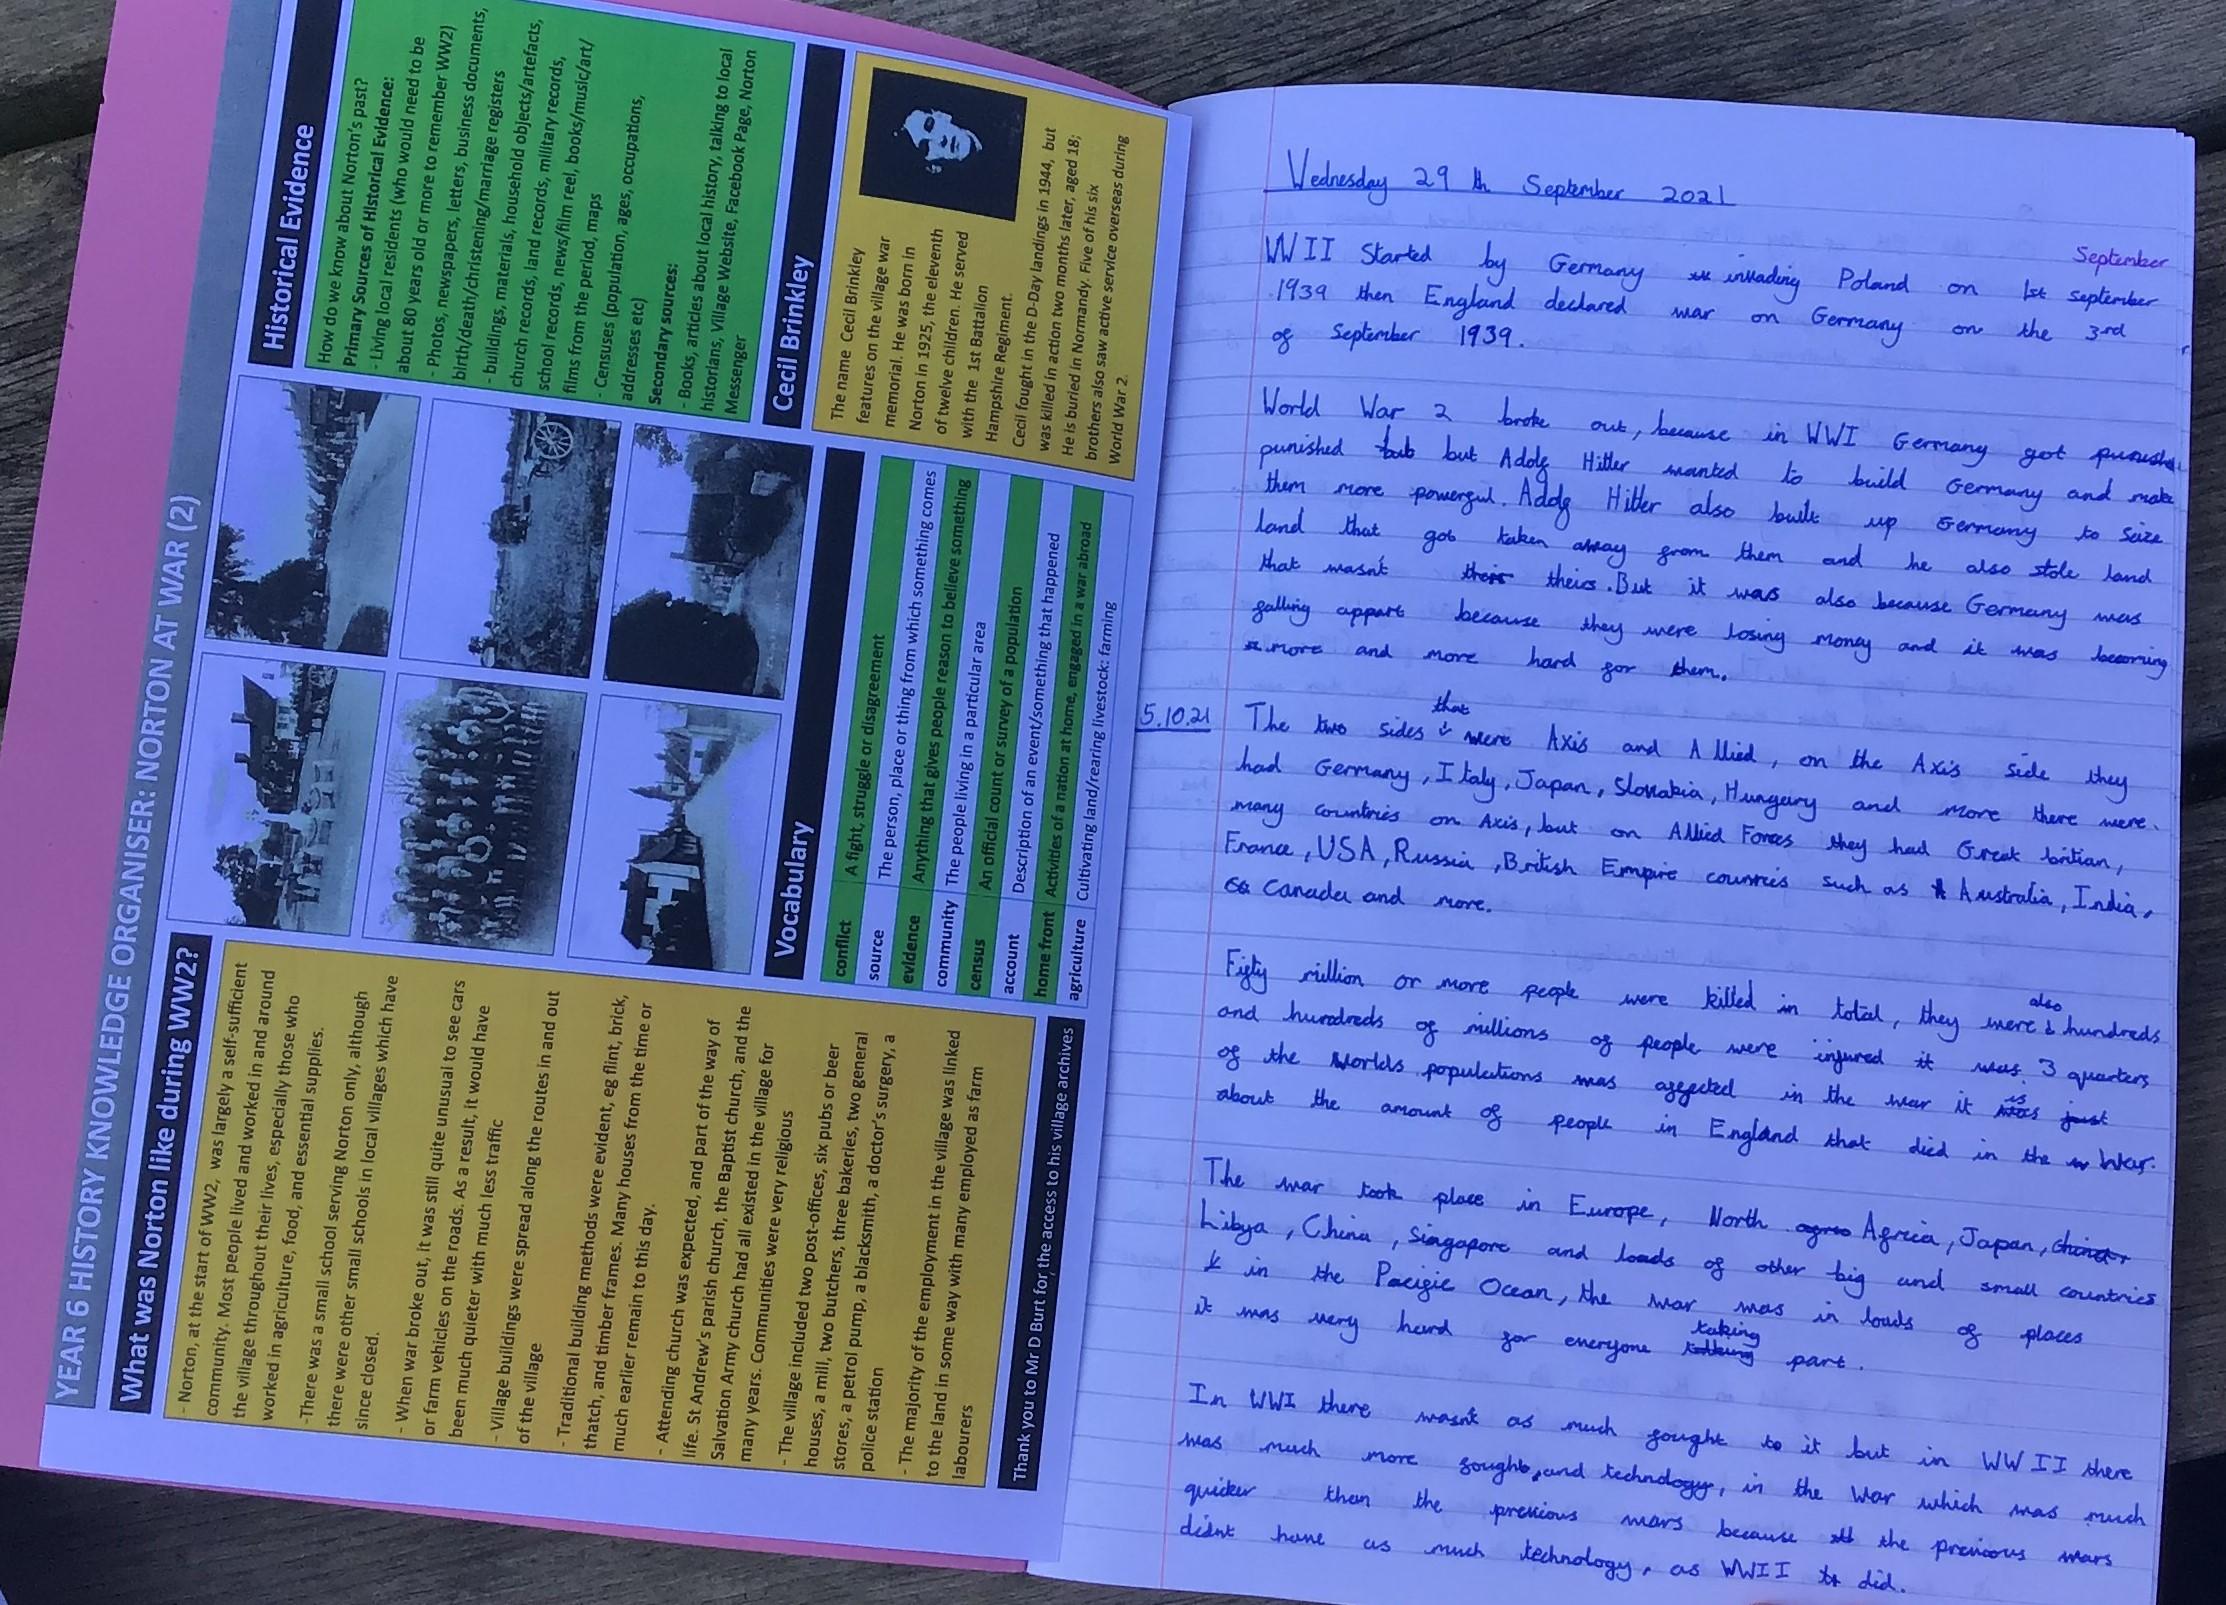 YEAR 6 HISTORY KNOWLEDGE ORGANISER: NORTON AT WAR (2)
What was Norton like during WW2?
- Norton, at the start of WW2, was largely a self-sufficient
community. Most people lived and worked in and around
the village throughout their lives, especially those who
worked in agriculture, food, and essential supplies.
-There was a small school serving Norton only, although
there were other small schools in local villages which have
since closed.
- When war broke out, it was still quite unusual to see cars
or farm vehicles on the roads. As a result, it would have
been much quieter with much less traffic
- Village buildings were spread along the routes in and out
of the village
- Traditional building methods were evident, eg flint, brick,
thatch, and timber frames. Many houses from the time or
much earlier remain to this day.
- Attending church was expected, and part of the way of
life. St Andrew's parish church, the Baptist church, and the
Salvation Army church had all existed in the village for
many years. Communities were very religious
- The village included two post-offices, six pubs or beer
houses, a mill, two butchers, three bakeries, two general
stores, a petrol pump, a blacksmith, a doctor's surgery, a
police station
- The majority of the employment in the village was linked
to the land in some way with many employed as farm
labourers
Thank you to Mr D Burt for the access to his village archives
Vocabulary
conflict A fight, struggle or disagreement
source The person, place or thing from which something comes
evidence Anything that gives people reason to believe something
community The people living in a particular area
census An official count or survey of a population
account Description of an event/something that happened
home front Activities of a nation at home, engaged in a war abroad
agriculture Cultivating land/rearing livestock: farming
Historical Evidence
How do we know about Norton's past?
Primary Sources of Historical Evidence:
- Living local residents (who would need to be
about 80 years old or more to remember WW2)
- Photos, newspapers, letters, business documents,
birth/death/christening/marriage registers
- buildings, materials, household objects/artefacts,
church records, land records, military records,
school records, news/film reel, books/music/art/
films from the period, maps
- Censuses (population, ages, occupations,
addresses etc)
Secondary sources:
- Books, articles about local history, talking to local
historians, Village Website, Facebook Page, Norton
Messenger
Cecil Brinkley
The name Cecil Brinkley
features on the village war
memorial. He was born in
Norton in 1925, the eleventh
of twelve children. He served
with the 1st Battalion
Hampshire Regiment.
Cecil fought in the D-Day landings in 1944, but
was killed in action two months later, aged 18;
He is buried in Normandy. Five of his six
brothers also saw active service overseas during
World War 2.
Wednesday 29th September 2021
September
WWII Started by Germany invading Poland on 1st september
1939 then England declared war on Germany on the 3rd
of September 1939.
World War 2 broke out, because in WWI Germany got punish
punished bub but Addg Hitler wanted to build Germany and make
them more powerful. Addg Hitler also built up Germany to seize
land that got taken away from them and he also stole land
that wasn't their theirs. But it was also because Germany was
falling appart because they were losing money and it was becoming
more and more hard for them.
5.10.21
The two sides that were Axis and Allied, on the Axis side they
had Germany, Italy, Japan, Slovakia, Hungary and more there were
many countries on Axis, but on Allied Forces they had Great britian,
France, USA, Russia, British Empire countries such as Australia, India,
Ca Canada and more.
Fifty million or more people were killed in total, they were also hundreds
and hundreds of millions of people were injured it was 3 quarters
of the worlds populations was affected in the war it is just
about the amount of people in England that died in the w War.
The war took place in Europe, North agrea Africa, Japan, China,
Libya, China, Singapore and loads of other big and small countries
in the Pacific Ocean, the war was in loads of places
it was very hard for everyone taking part.
In WWI there wasn't as much fought to it but in WWII there
was much more fought, and technology, in the war which was much
quicker than the previous wars because the previous wars
didnt have as much technology, as WWII did.